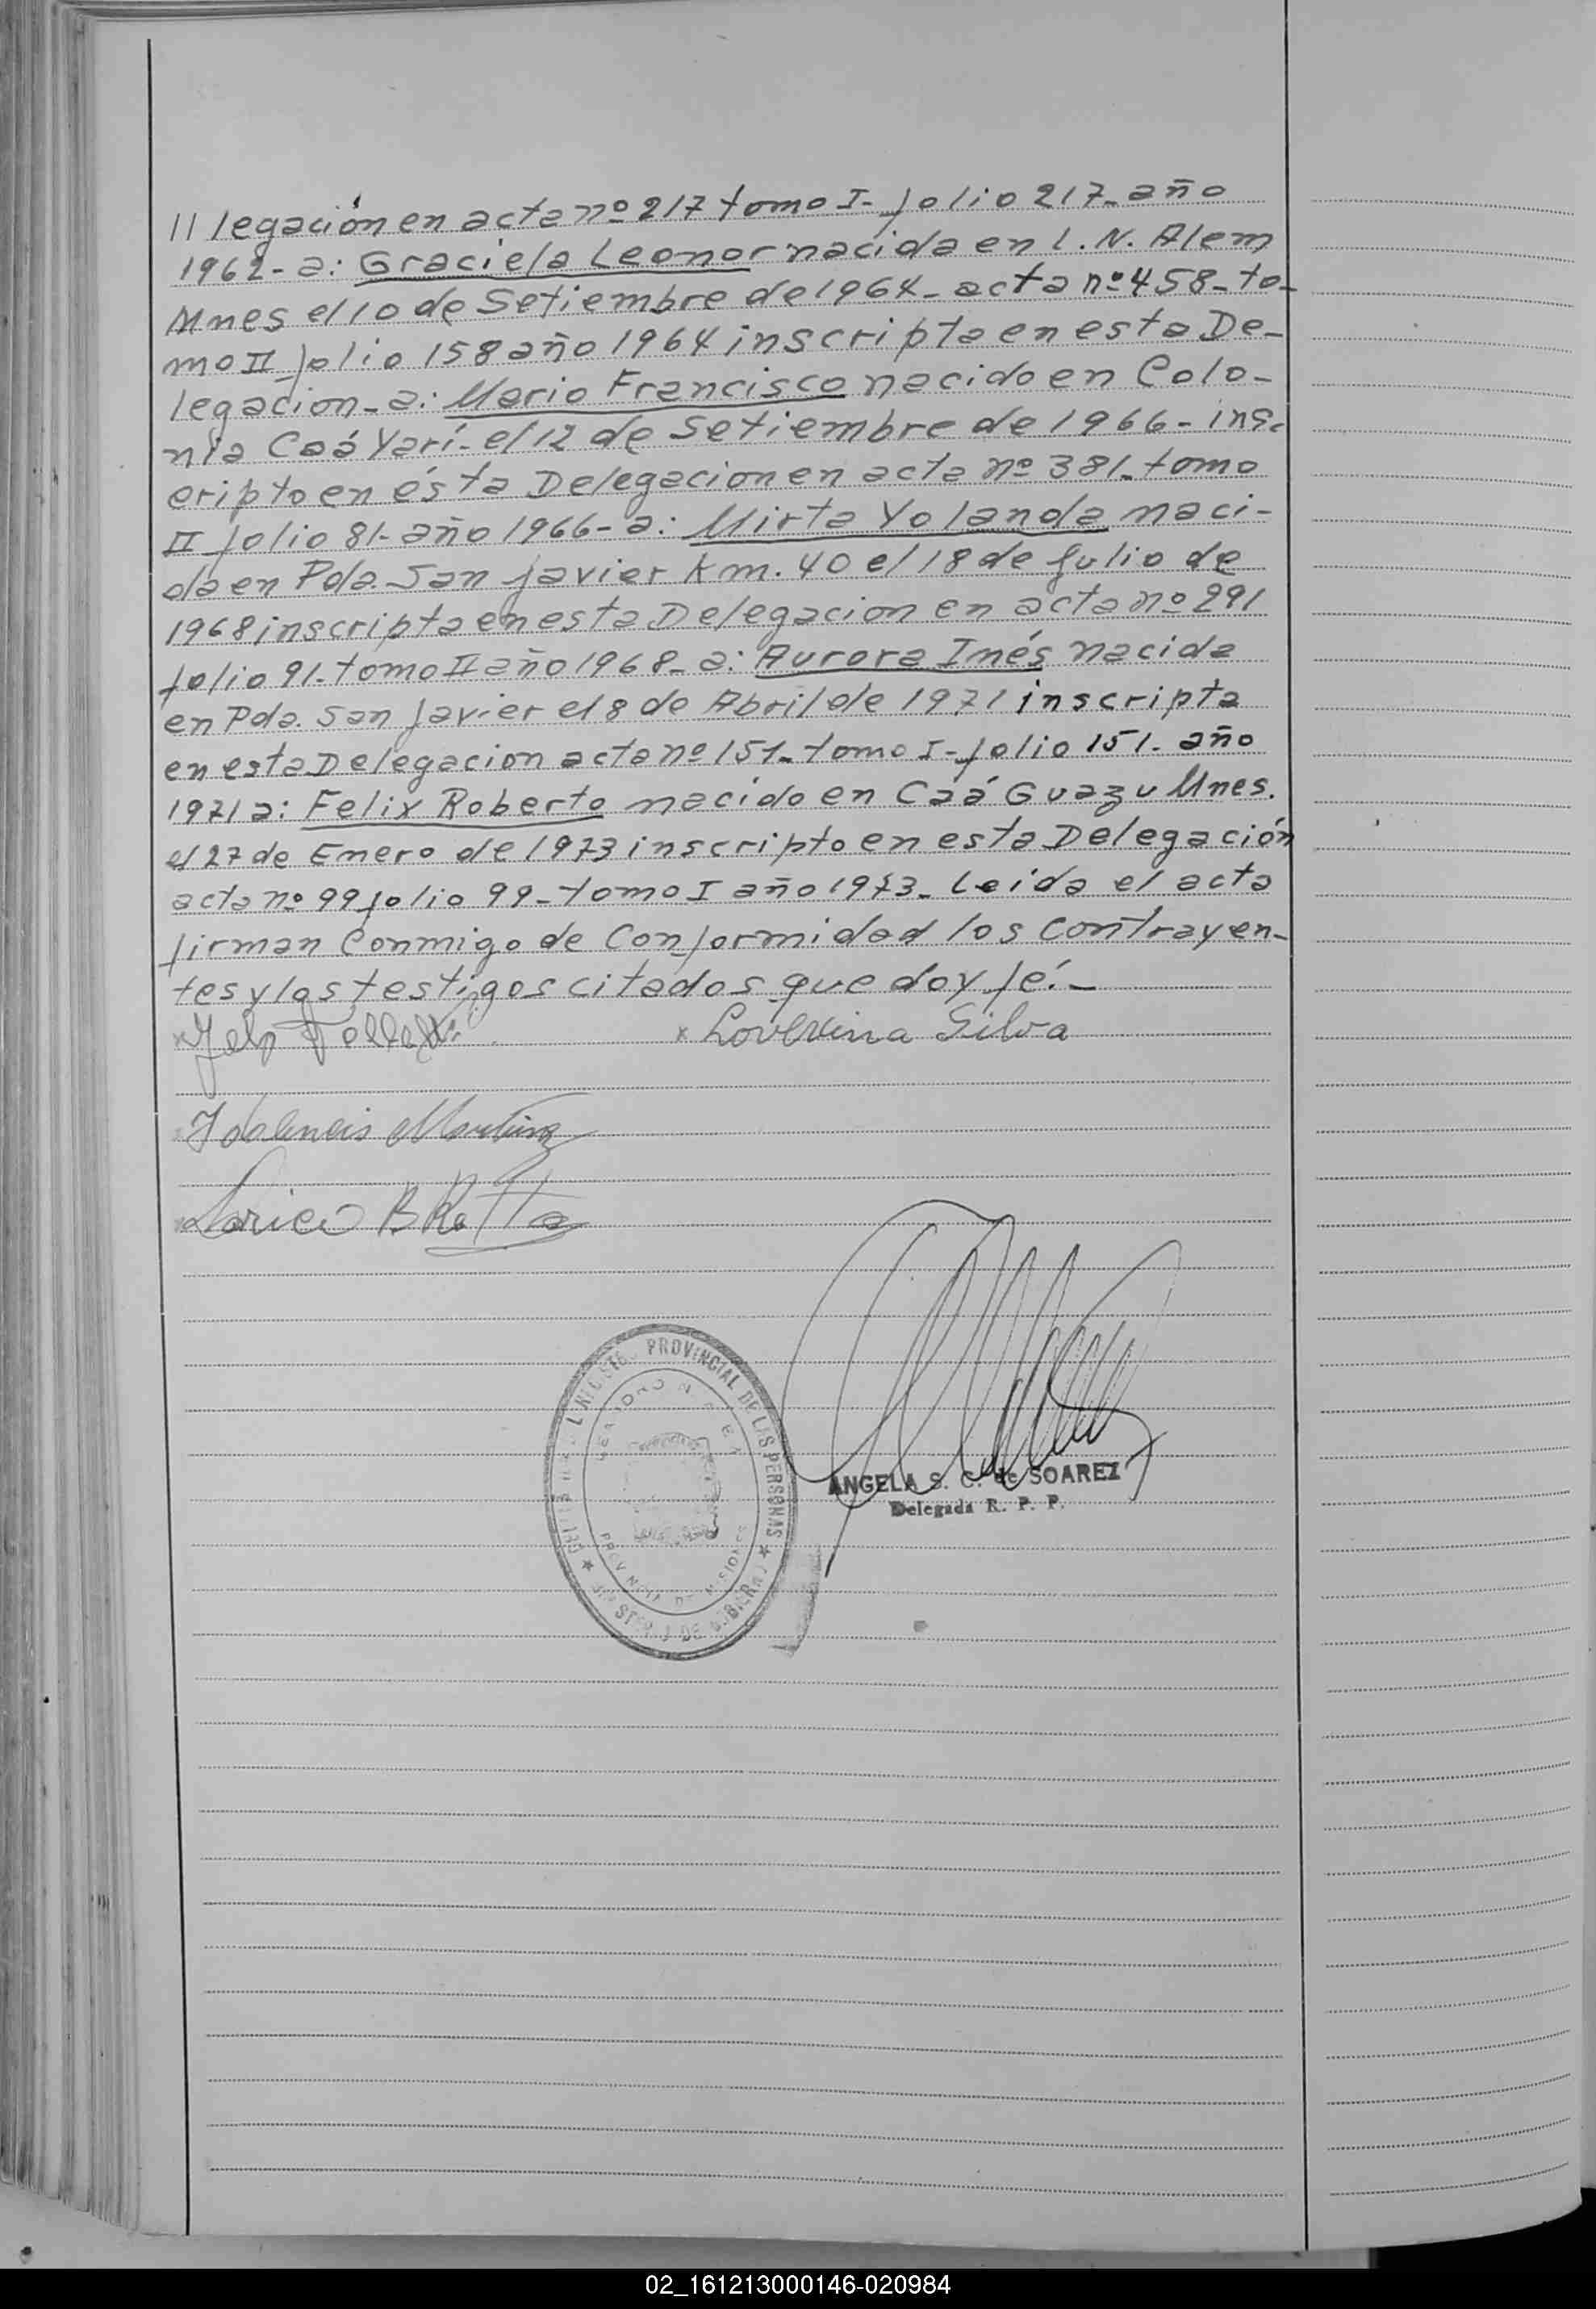 // legación en acta nº 217 tomo I- folio 217- año
1962- a: Graciela Leonor nacida en L. N. Alem
Mnes el 10 de Setiembre de 1964- acta nº 458- to-
mo II folio 158 año 1964 inscripta en esta De-
legación- a: Mario Francisco nacido en Colo-
nia Caá Yarí- el 12 de Setiembre de 1966- ins-
cripto en ésta Delegacion en acta nº 381- tomo
II folio 81- año 1966- a: Mirta Yolanda naci-
da en Pda. San Javier Km. 40 el 18 de Julio de
1968 inscripta en esta Delegacion en acta nº 291
folio 91- tomo II año 1968- a: Aurora Inés nacida
en Pda. San Javier el 8 de Abril de 1971 inscripta
en esta Delegacion acta nº 151- tomo I- folio 151- año
1971 a: Felix Roberto nacido en Caá Guazu Mnes.
el 27 de Enero de 1973 inscripto en esta Delegación
acta nº 99 folio 99- tomo I año 1973- Leida el acta
firman Conmigo de Conformidad los Contrayen-
tes y los testigos citados que doy fé.-
x Silva
Martinez
B Rotta
PROVINCIAL DE LAS PERSONAS
PROVINCIA DE MISIONES
ANGELA S. C. de SOAREZ
Delegada R. P. P.
02_161213000146-020984